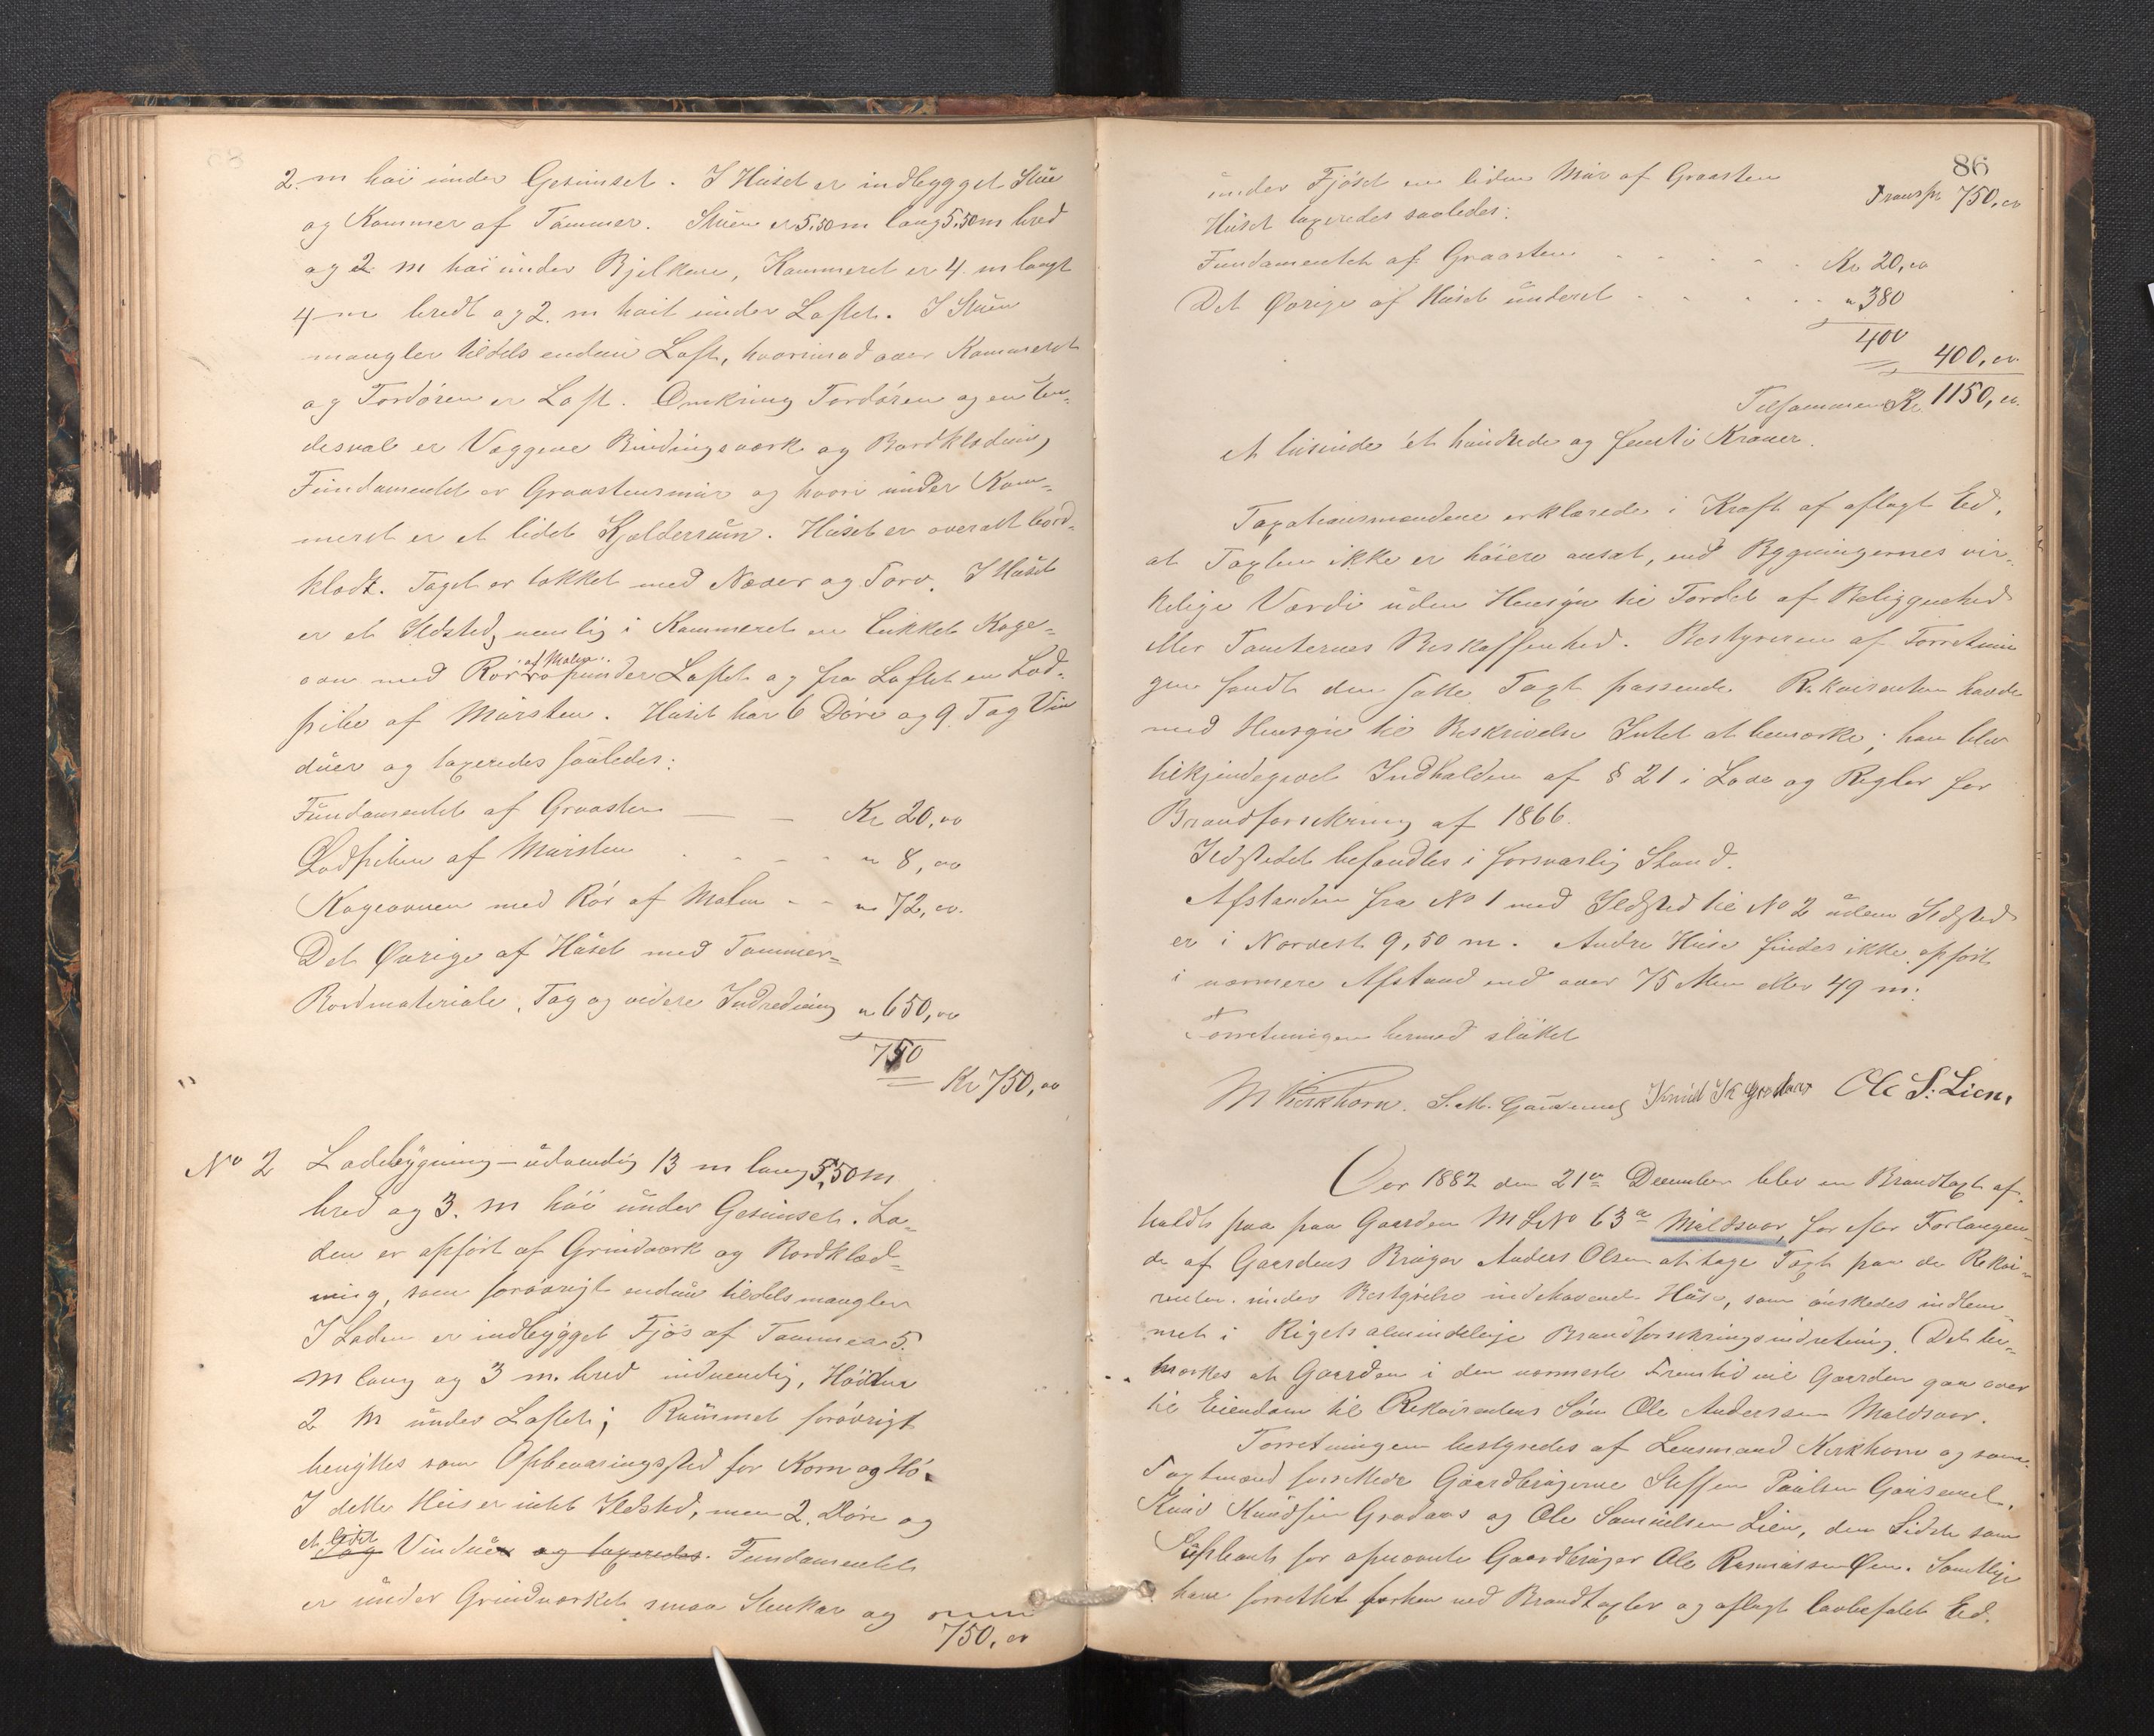 2. m høi under Gesimset. I Huset er indbygget Stue
og Kammer af Tømmer. Stuen er 5,50 m lang 5,50 m bred
og 2 m høi under Bjelkene, Kammeret er 4 m langt
4 m bredt og 2. m høit under Loftet. I Stuen
mangler tildels endnu Loft, hvorimod over Kammeret
og Fordøren er Loft. Omkring Fordøren og en
er Væggene Bindingsværk og Bordklædning,
Fundamentet er Graastensmur og hvori under Kam-
meret er et lidet Kjelderrum. Huset er overalt bord-
klædt. Taget er tækket med Næver og Torv. I Huset
er et Ildsted, nemlig i Kammeret en lukket Koge-
ovn med Rør af Malm op under Loftet og fra Loftet en Lod-
pibe af Mursten. Huset har 6 Døre og 9 Fag Vin
duer og taxeredes saaledes:
Fundamentet af Graasten — — Kr 20,00
Lodpiben af Mursten " 8,00
Kogeovnen med Rør af Malm - - " 72,00.
Det Øvrige af Huset med Tømmer-
Bordmateriale, Tag og videre Indredning " 650,00
750
Kr 750,00
No 2 Ladebygning — udvendig 13 m lang 5,50 m
bred og 3. m høi under Gesimset. La-
den er opført af Grindverk og Bordklæd-
ning, som forøvrigt endnu tildels mangler
I Laden er indbygget Fjøs af Tømmer 5.
m lang og 3 m. bred indvendig, Høiden
2 m under Loftet; Rummet forøvrigt
benyttes som Opbevaringssted for Korn og Hø.
I dette Hus er intet Ildsted, men 2. Døre og
et lidet Fag Vinduer og taxeredes. Fundamentet
er under Grindverket smaa Stenkar og
750,00
86
under Fjøset en liden Mur af Graasten
Transp. 750,00
Huset taxeredes saaledes:
Fundamentet af Graasten . . . . Kr 20,00
Det Øvrige af Huset underet . . . . " 380
400
400,00
Tilsammen Kr 1150,00.
et tusinde et hundrede og femti Kroner.
Taxationsmændene erklærede i Kraft af aflagt Eed,
at Taxten ikke er høiere ansat, end Bygningernes vir-
kelige Værdi uden Hensyn til Fordel af Beliggenhed
eller Tomternes Beskaffenhed. Bestyreren af Forretnin
gen fandt den satte Taxt passende. Rekvirenten havde
med Hensyn til Beskrivelse Intet at bemærke; han blev
tilkjendegivet Indholden af § 21 i Love og Regler for
Brandforsikring af 1866.
Ildstedet befandtes i forsvarlig Stand.
Afstanden fra No 1 med Ildsted til No 2 uden Ildsted
er i Norvest 9,50 m. Andre Huse findes ikke opført
i nærmere Afstand end over 75 Alen eller 49 m.
Forretningen hermed sluttet
M Kirkhorn. S. M. Gausemel Knud K Grodaas Ole S. Lien.
Aar 1882 den 21de December blev en Brandtaxt af-
holdt paa paa Gaarden M L No 63a Maldsvor, for efter Forlangen-
de af Gaardens Bruger Anders Olsen at tage Taxt paa de Rekvi-
renten under Bestyrelse indehavende Huse, som ønskedes indlem-
met i Rigets almindelige Brandforsikringsindretning. Det be-
mærkes at Gaarden i den nærmeste Fremtid vil Gaarden gaa over
til Eiendom til Rekvirentens Søn Ole Anderssen Maldsvor.
Forretningen bestyredes af Lensmand Kirkhorn og som
Taxtmænd forrettede Gaardbrugerne Steffen Paulsen Gausemel,
Knud Knudsen Grodaas og Ole Samuelsen Lien, den Sidste som
Supleant for opnævnte Gaardbruger Ole Rasmussen Øen. Samtlige
have forrettet forhen ved Brandtaxter og aflagt lovbefalet Eed.